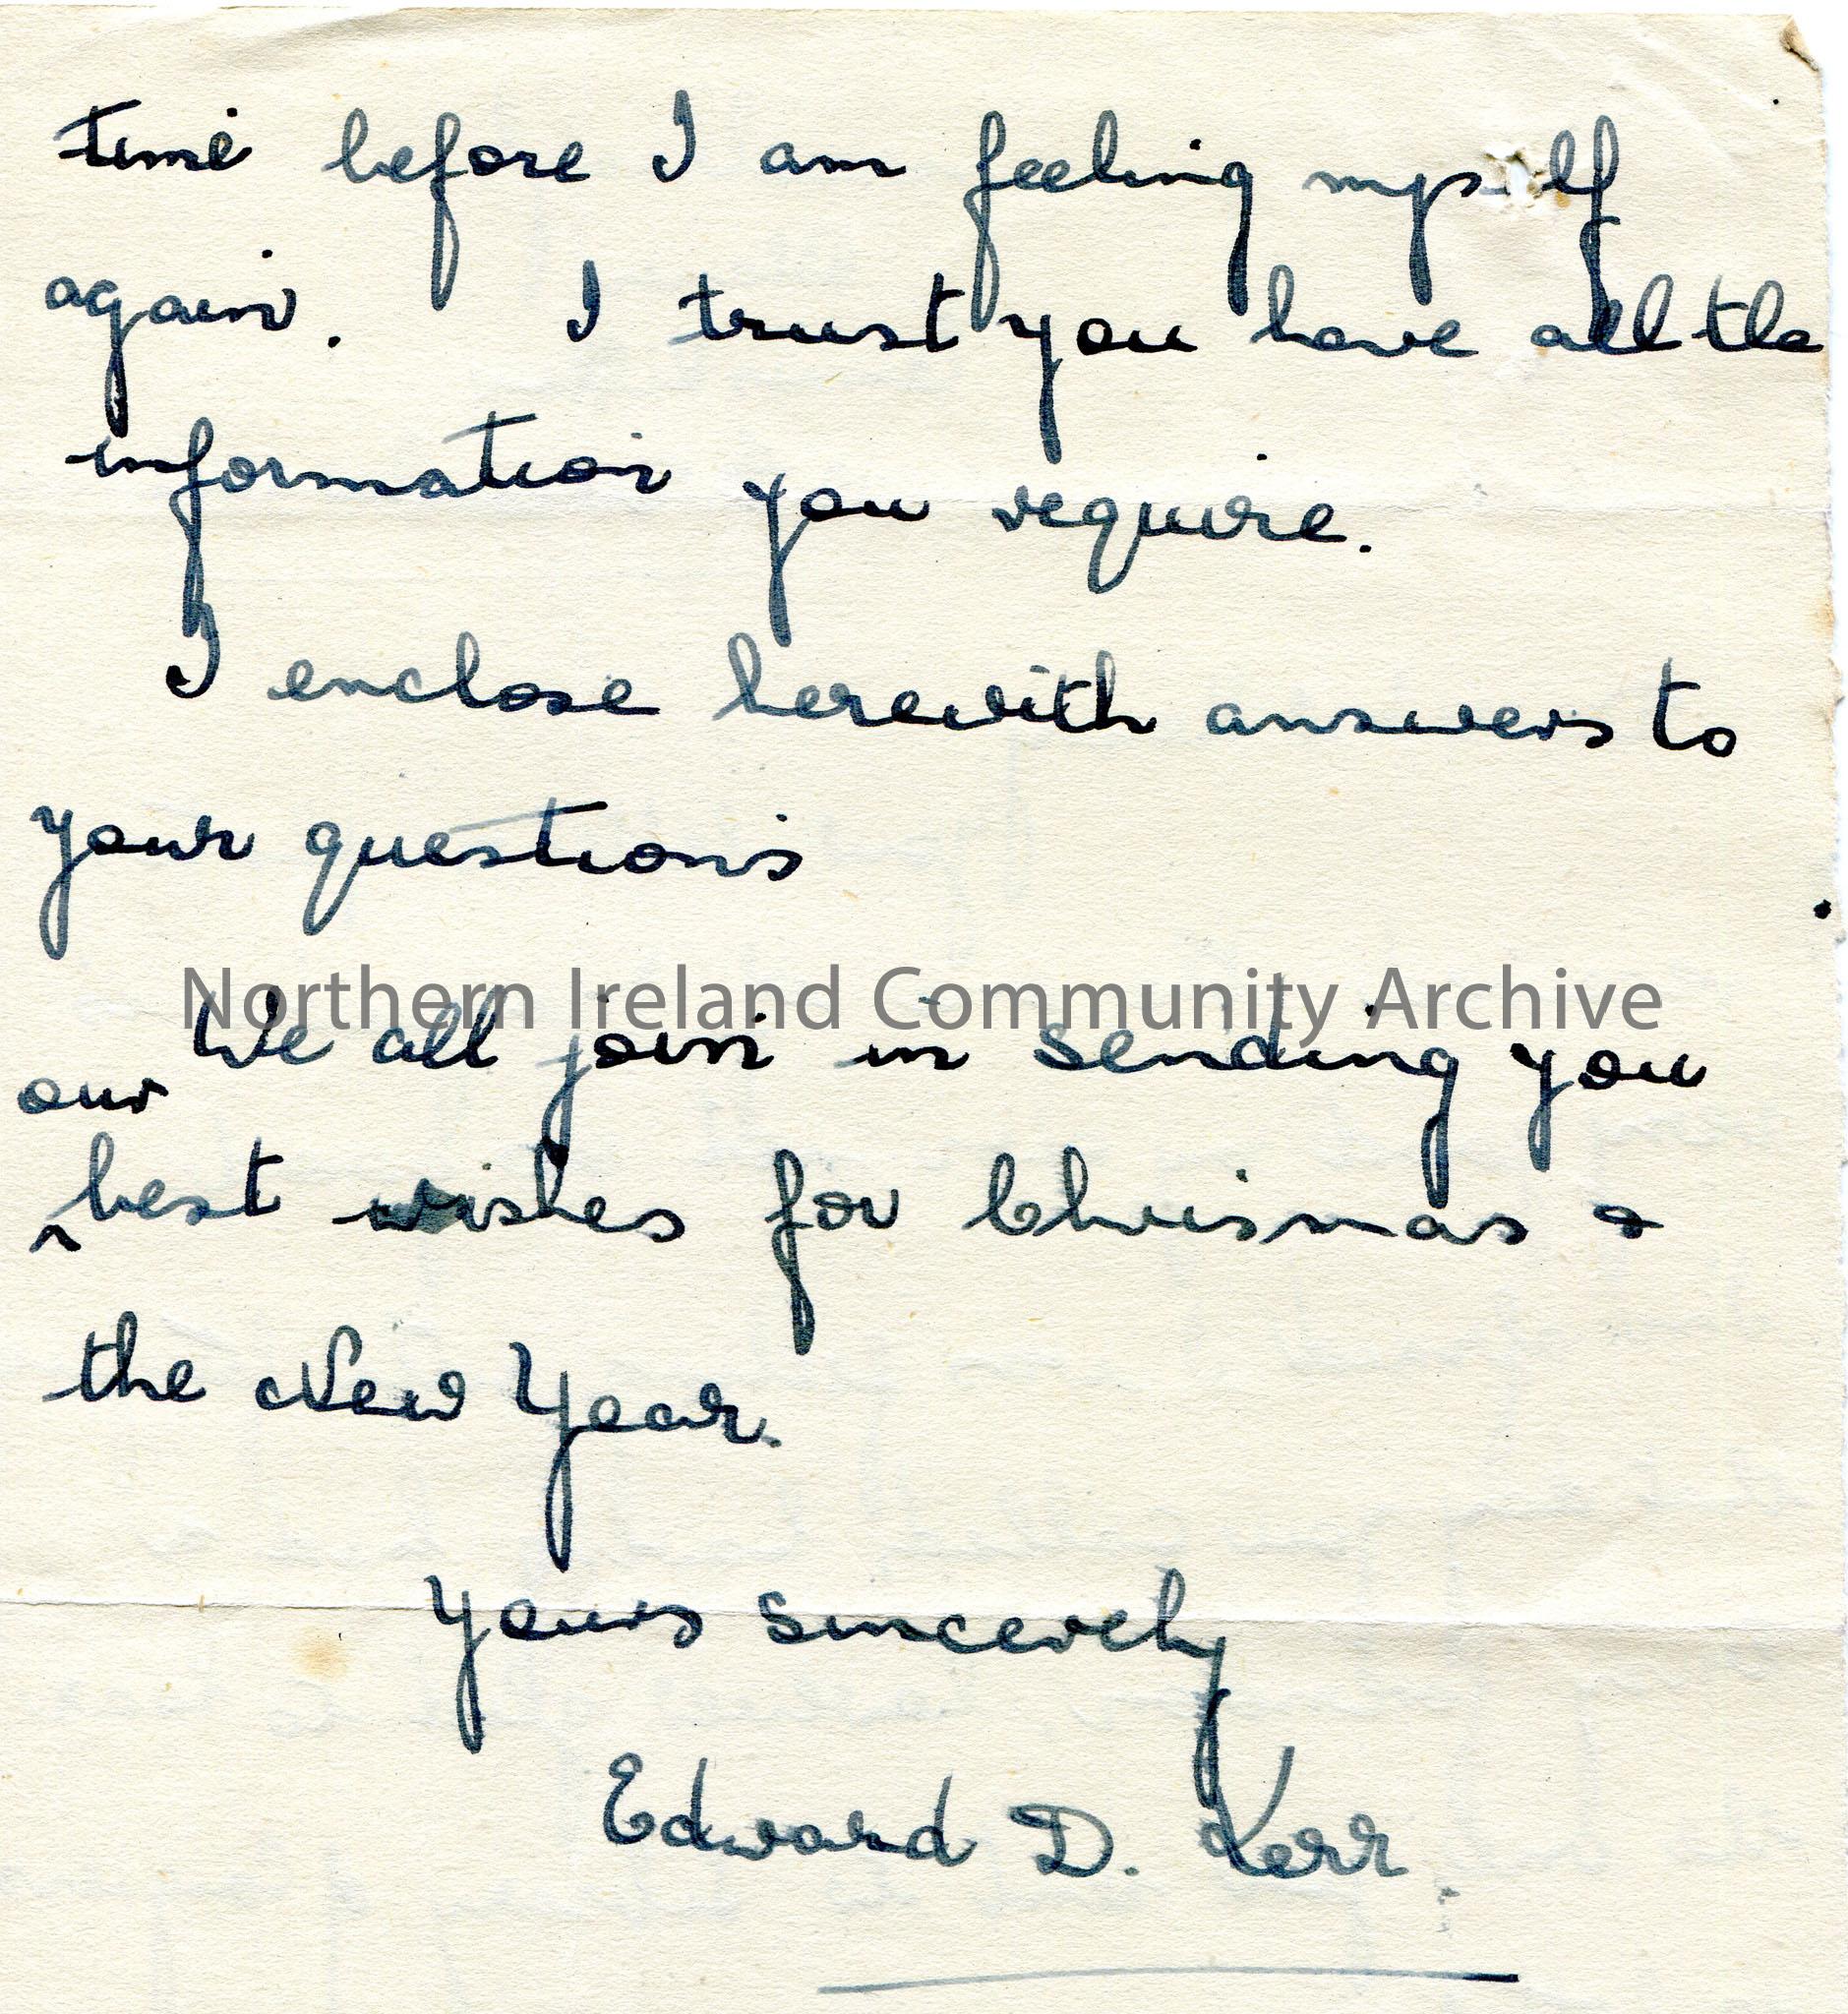 time before I am feeling myself
again. I trust you have all the
information you require.
I enclose herewith answers to
your questions
Northern Ireland Community Archive
We all join in sending you
our
^best wishes for Chrismas &
the New Year.
Yours sincerely
Edward D. Kerr.